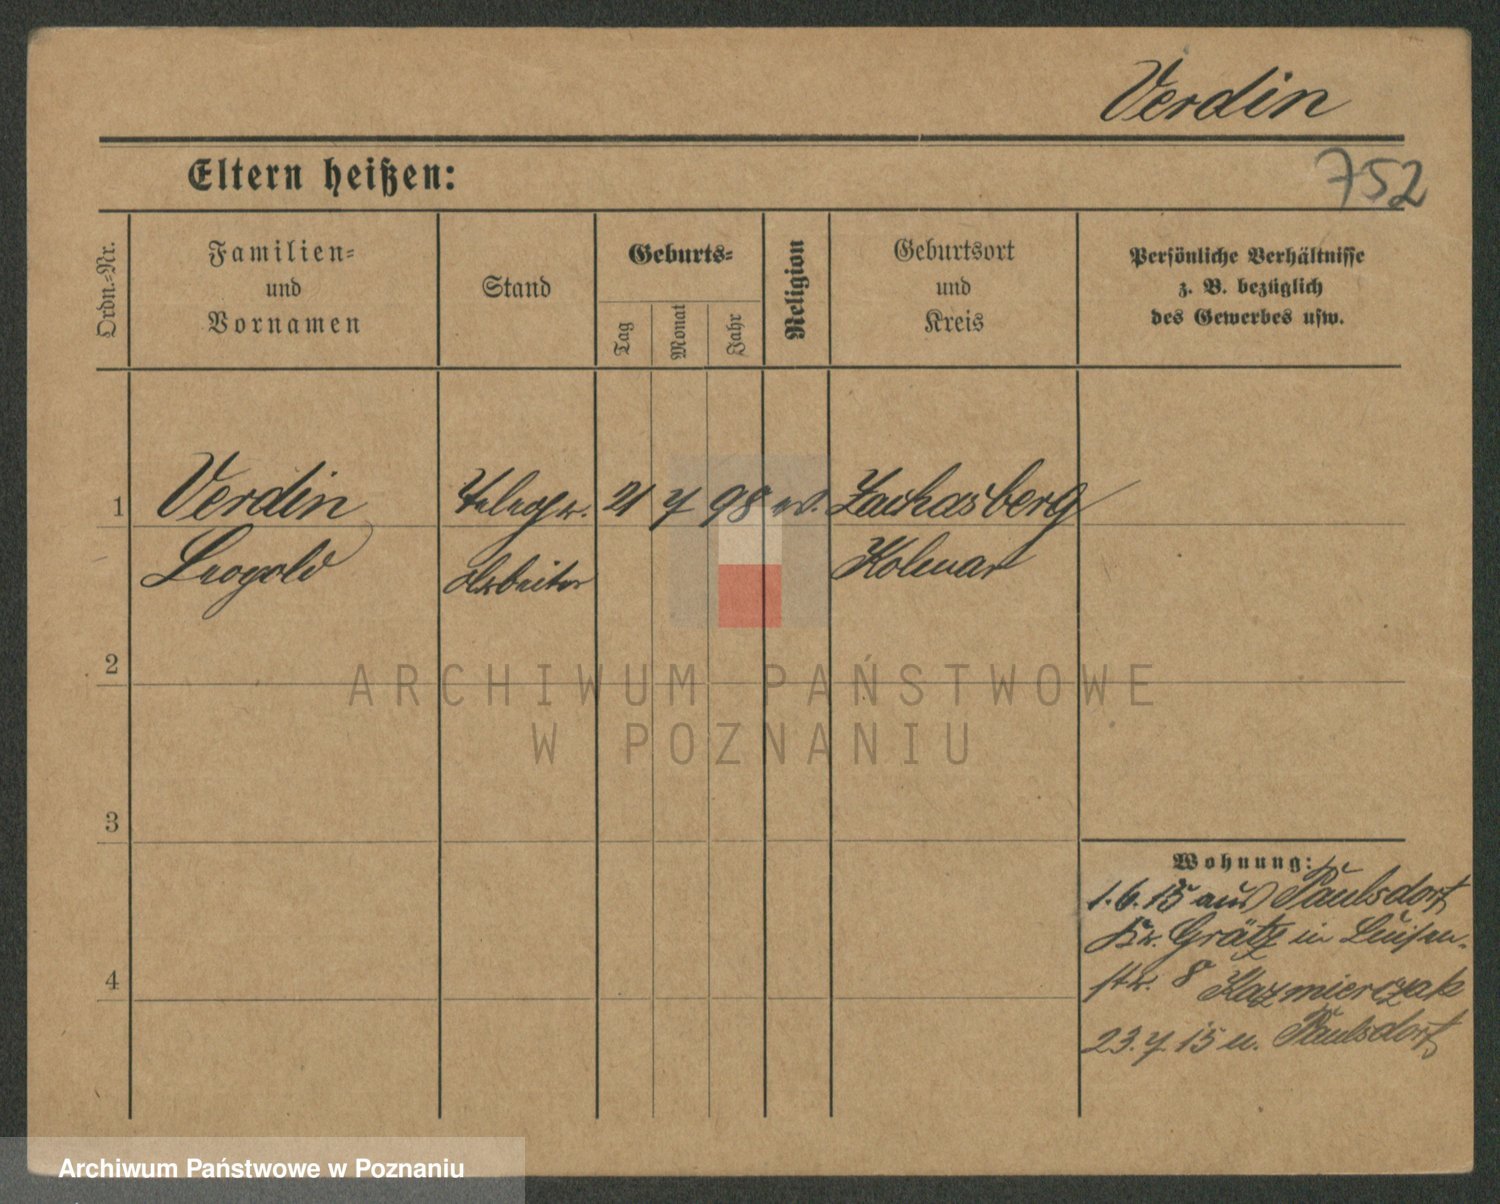 Verdin
Eltern heißen:
752
Ordn.-Nr.
Familien-
und
Vornamen
Stand
Geburts-
Tag
Monat
Jahr
Religion
Geburtsort
und
Kreis
Persönliche Verhältnisse
z. B. bezüglich
des Gewerbes usw.
1 Verdin Telegr. 21 7 98 ev. Zachasberg
Leopold Arbeiter Kolmar
2
3
4
Wohnung:
1.6.15 aus Paulsdorf
Kr. Grätz in Luisen-
str. 8 Kazmierczak
23.7.15 n. Paulsdorf
ARCHIWUM PAŃSTWOWE
W POZNANIU
Archiwum Państwowe w Poznaniu